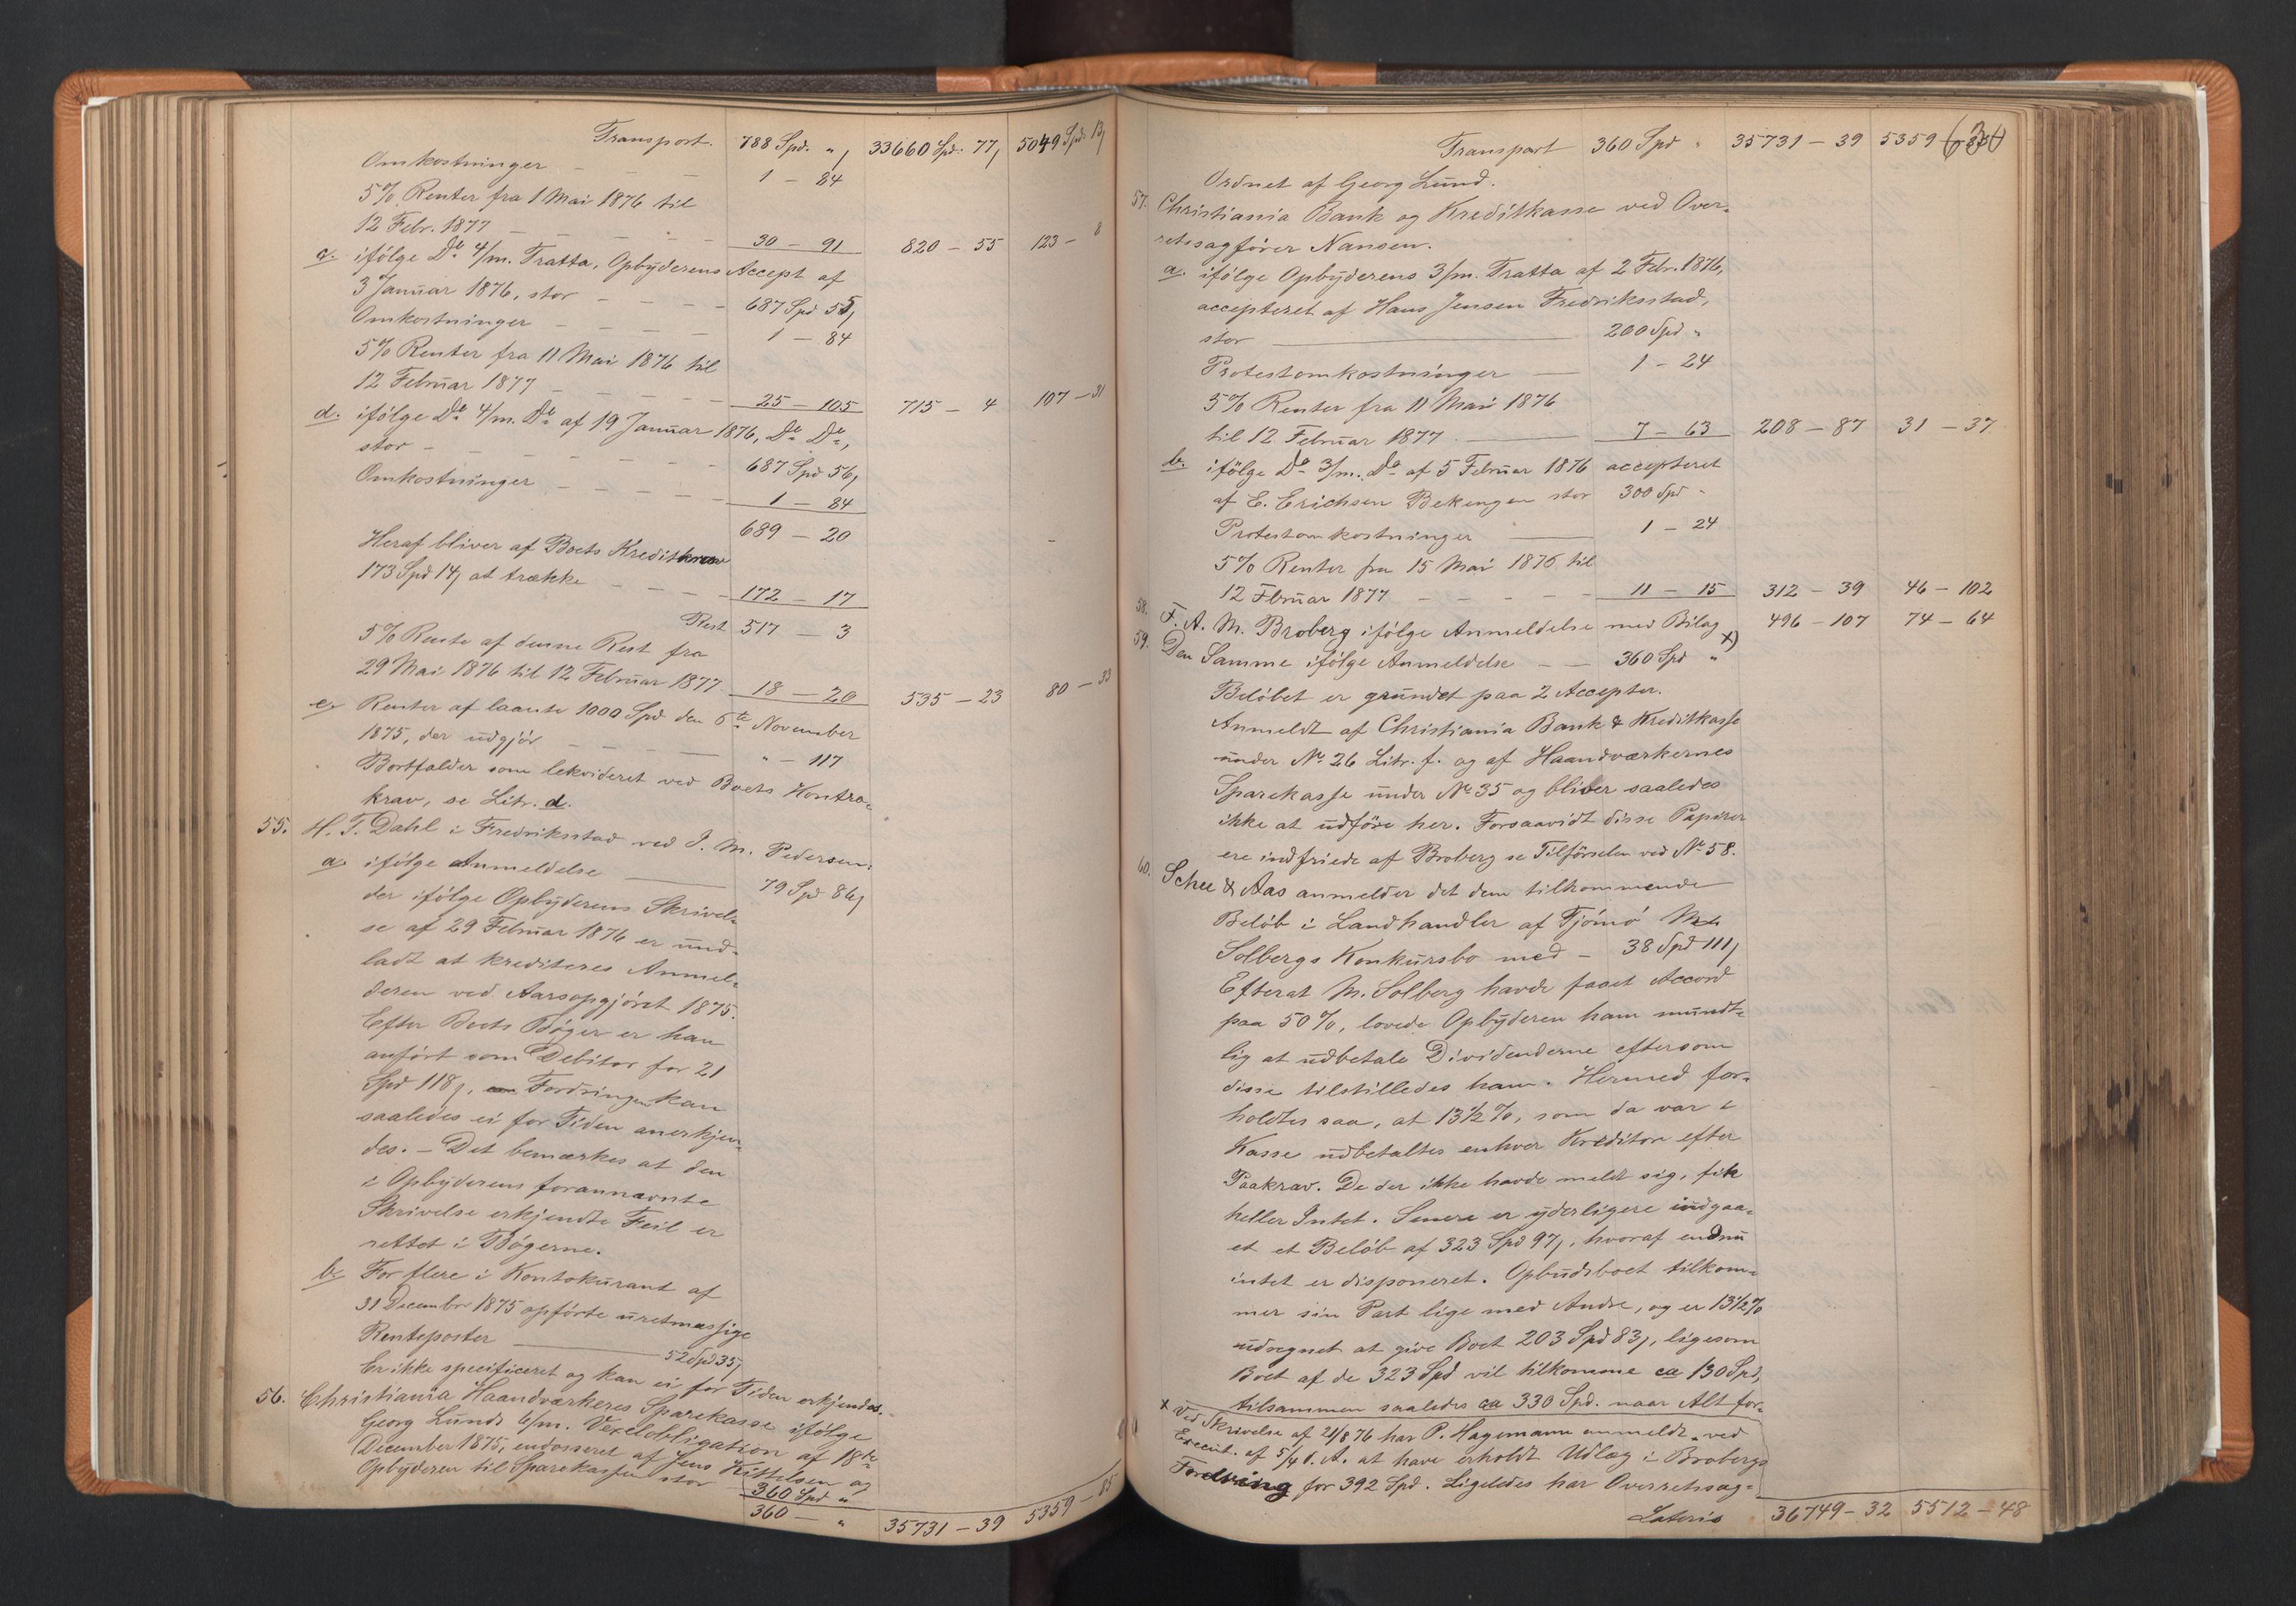 Transport. 788 Spd. „ 33660 Spd. 77, 5049 Spd. 13,
Omkostninger – – – 1 – 84
5% Renter fra 1 Mai 1876 til
12 Febr. 1877 – – – – 30 – 91 820 – 55 123 – 8
c. ifölge Do 4/m. Tratta, Opbÿderens Accept af
3 Januar 1876, stor – – – – 687 Spd 55,
Omkostninger – – – – 1 – 84
5% Renter fra 11 Mai 1876 til
12 Februar 1877 – – – – 25 – 105 715 – 4 107 – 31
d. ifölge Do 4/m. Do af 19 Januar 1876, Do Do,
stor – – – – – – 687 Spd 56,
Omkostninger – – – – – 1 – 84
689 – 20
Heraf bliver af Boets Kreditkrav
173 Spd 14, at trække – – – – 172 – 17
Rest 517 – 3
5% Rente af denne Rest fra
29 Mai 1876 til 12 Februar 1877 18 – 20 535 – 23 80 – 33
e. Renter af laante 1000 Spd den 6te November
1875, der udgjör – – – – „ – 117
Bortfalder som lekvideret ved Boets Kontra-
krav, se Litr. d.
55. H. T. Dahl i Fredriksstad ved J. M. Pedersen:
a. ifölge Anmeldelse – 79 Spd 86,
der ifölge Opbÿderens Skrivel-
se af 29 Februar 1876 er und-
ladt at krediteres Anmel-
deren ved Aarsopgjöret 1875.
Efter Boets Böger er han
anfört som Debitor for 21
Spd 118, Fordringen kan
saaledes ei for Tiden anerkjen-
des. – Det bemærkes at den
i Opbÿderens forannævnte
Skrivelse erkjendte Feil er
rettet i Bögerne.
b. For flere i Kontokurant af
31 December 1875 opförte uretmæssige
Renteposter – 52 Spd 35,
Er ikke specificeret og kan ei for Tiden erkjendes.
56. Christiania Haandværkeres Sparekasse ifölge
Georg Lunds 6/m. Vexelobligation af 18de
December 1875, endosseret af Jens Kittelsen og
Opbÿderen til Sparekassen stor 360 Spd „
360 – „ 35731 – 39 5359 – 85
Transport 360 Spd „ 35731 – 39 5359 – 85
Ordnet af Georg Lund.
57. Christiania Bank og Kreditkasse ved Over-
retssagförer Nansen.
a. ifölge Opbÿderens 3/m. Tratta af 2 Febr. 1876,
accepteret af Hans Jensen Fredriksstad,
stor – 200 Spd „
Protestomkostninger – 1 – 24
5% Renter fra 11 Mai 1876
til 12 Februar 1877 – 7 – 63 208 – 87 31 – 37
b. ifölge Do 3/m. Do af 5 Februar 1876 accepteret
af E. Erichsen Bekengen stor 300 Spd „
Protestomkostninger – 1 – 24
5% Renter fra 15 Mai 1876 til
12 Fbruar 1877 – – – – 11 – 15 312 – 39 46 – 102
58. F. A. M. Broberg ifölge Anmeldelse med Bilag 496 – 107 74 – 64
59. Den Samme ifölge Anmeldelse – – 360 Spd „ x)
Belöbet er grundet paa 2 Accepter.
Anmeldt af Christiania Bank & Kreditkasse
under No 26 Litr. f. og af Haandværkernes
Sparekasse under No 35 og bliver saaledes
ikke at udföre her. Forsaavidt disse Papirer
ere indfriede af Broberg se Tilförselen ved No 58.
60. Schee & Aas anmelder det dem tilkommende
Belöb i Landhandler af Tjömö M.
Solbergs Konkursbo med – 38 Spd 111,
Efterat M. Solberg havde faaet Accord
paa 50%, lovede Opbÿderen ham mundt-
lig at udbetale Dividenderne eftersom
disse tilstilledes ham. Hermed for-
holdtes saa, at 13½%, som da var i
Kasse udbetaltes enhver Kreditor efter
Paakrav. De der ikke havde meldt sig, fik
heller Intet. Senere er yderligere indgaa-
et et Belöb af 323 Spd 97, hvoraf endnu
intet er disponeret. Opbudsboet tilkom-
mer sin Part lige med Andre, og er 13½%
udregnet at give Boet 203 Spd 83, ligesom
Boet af de 323 Spd vil tilkomme ca 130 Spd,
tilsammen saaledes ca 330 Spd. naar Alt for-
x Ved Skrivelse af 21/8 76 har P. Hagemann anmeldt ved
Execut. af 5/4 d. A. at have erholdt Udlæg i Brobergs
Fordring for 392 Spd. Ligeledes har Overretssag-
Lateris 36749 – 32 5512 – 48